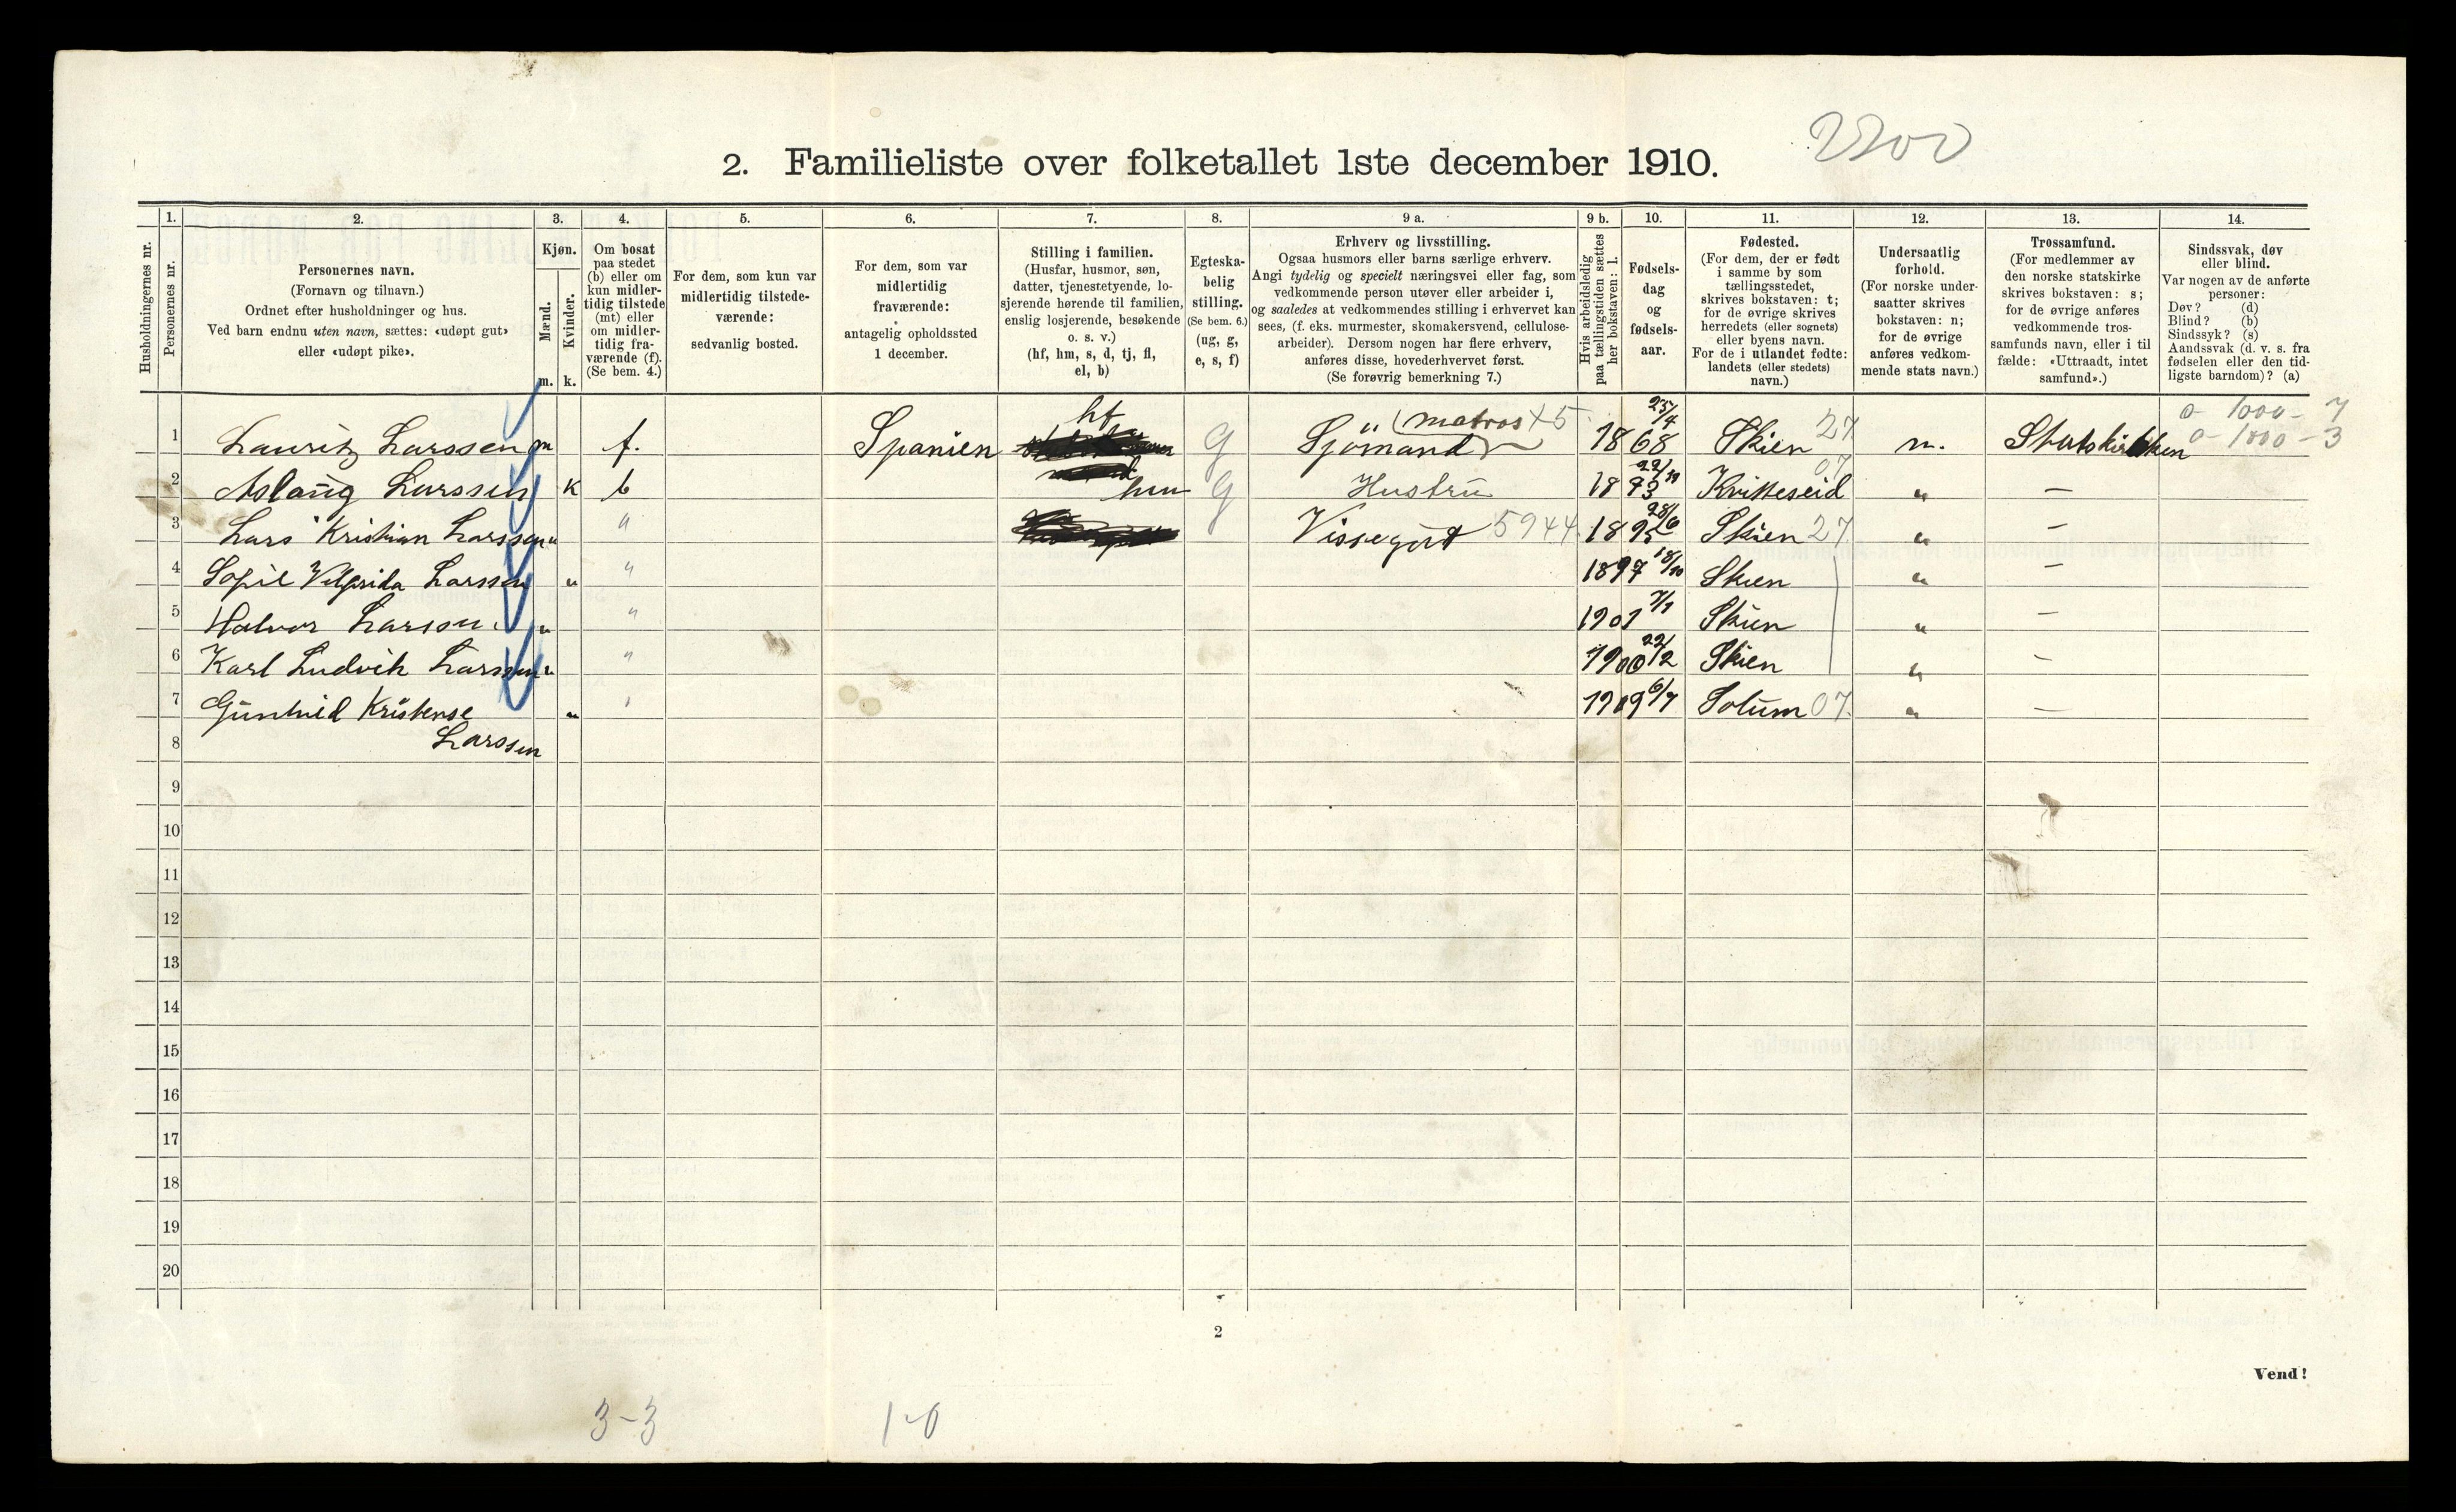 2200
2. Familieliste over folketallet 1ste december 1910.
Husholdningernes nr.
1. Personernes nr.
2. Personernes navn.
(Fornavn og tilnavn.)
Ordnet efter husholdninger og hus.
Ved barn endnu uten navn, sættes: «udøpt gut»
eller «udøpt pike».
3. Kjøn.
Mænd. Kvinder.
m. k.
4. Om bosat
paa stedet
(b) eller om
kun midler-
tidig tilstede
(mt) eller
om midler-
tidig fra-
værende (f).
(Se bem. 4.)
5. For dem, som kun var
midlertidig tilstede-
værende:
sedvanlig bosted.
6. For dem, som var
midlertidig
fraværende:
antagelig opholdssted
1 december.
7. Stilling i familien.
(Husfar, husmor, søn,
datter, tjenestetyende, lo-
sjerende hørende til familien,
enslig losjerende, besøkende
o. s. v.)
(hf, hm, s, d, tj, fl,
el, b)
8. Egteska-
belig
stilling.
(Se bem. 6.)
(ug, g,
e, s, f)
9 a. Erhverv og livsstilling.
Ogsaa husmors eller barns særlige erhverv.
Angi tydelig og specielt næringsvei eller fag, som
vedkommende person utøver eller arbeider i,
og saaledes at vedkommendes stilling i erhvervet kan
sees, (f. eks. murmester, skomakersvend, cellulose-
arbeider). Dersom nogen har flere erhverv,
anføres disse, hovederhvervet først.
(Se forøvrig bemerkning 7.)
9 b. Hvis arbeidsledig
paa tællingstiden sættes
her bokstaven: l.
10. Fødsels-
dag
og
fødsels-
aar.
11. Fødested.
(For dem, der er født
i samme by som
tællingsstedet,
skrives bokstaven: t;
for de øvrige skrives
herredets (eller sognets)
eller byens navn.
For de i utlandet fødte:
landets (eller stedets)
navn.)
12. Undersaatlig
forhold.
(For norske under-
saatter skrives
bokstaven: n;
for de øvrige
anføres vedkom-
mende stats navn.)
13. Trossamfund.
(For medlemmer av
den norske statskirke
skrives bokstaven: s;
for de øvrige anføres
vedkommende tros-
samfunds navn, eller i til
fælde: «Uttraadt, intet
samfund».)
14. Sindssvak, døv
eller blind.
Var nogen av de anførte
personer:
Døv? (d)
Blind? (b)
Sindssyk? (s)
Aandssvak (d. v. s. fra
fødselen eller den tid-
ligste barndom)? (a)
hf (matros X5 25/4 0-1000-7
1 Lauritz Larssen m f. Spanien g Sjömand 1868 Skien 27 n. Statskirken 0-1000-3
2 Aslaug Larssen K b hm g Hustru 1873 22/11 Kvitteseid 07 " —
3 Lars Kristian Larssen " " Vissegut 5944 1895 28/6 Skien 27 " —
4 Sofie Larssen " " 1897 18/10 Skien " —
5 Halvor Larssen " " 1901 7/1 Skien " —
6 Karl Ludvik Larssen " " 1900 22/2 Skien " —
7 Gunhild Kristense " " 1909 6/7 Solum 07 " —
8 Larssen
9
10
11
12
13
14
15
16
17
18
19
20
2
Vend!
3-3 1-0